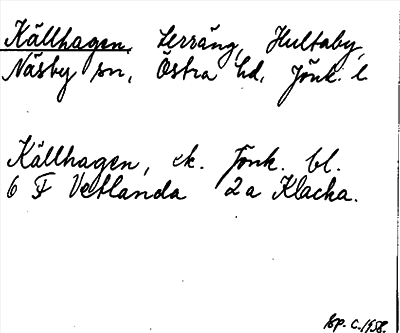 Källhagen, Serräng, Hultaby,
Näsby sn, Östra hd, Jönk. l
Källhagen, ek. Jönk. bl.
6 F Vetlanda 2a Klacka.
Bp. C. 1958.